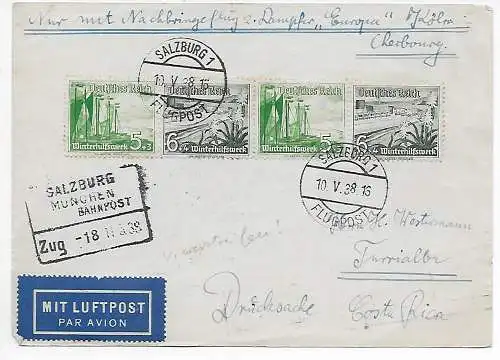 Nur mit Nachbringeflug z. Dampfer "Europa" 
Cherbourg.
SALZBURG 1
10.V.38 16
FLUGPOST
Deutsches Reich
5+3
Winterhilfswerk
Deutsches Reich
6+4
Winterhilfswerk
Deutsches Reich
5+3
Winterhilfswerk
Deutsches Reich
6+4
Winterhilfswerk
SALZBURG 1
10.V.38 16
FLUGPOST
SALZBURG
MÜNCHEN
BAHNPOST
Zug
H. Westermann
Turrialba
Costa Rica
Drucksache
MIT LUFTPOST
PAR AVION